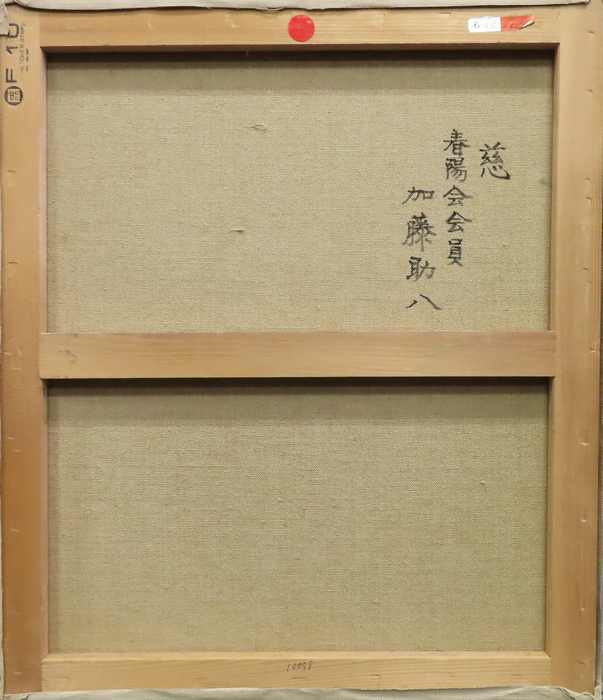 慈
春陽会会員
加藤助八
F 10